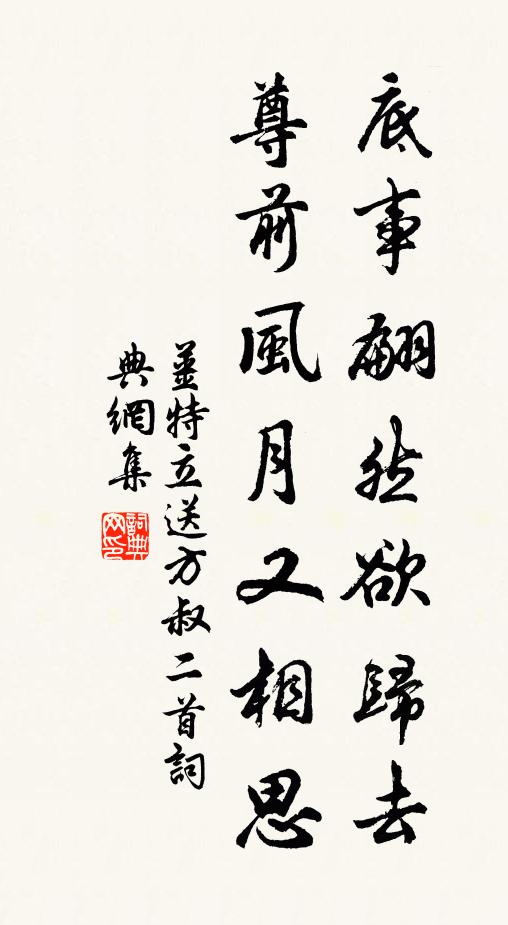 底事翩然欲歸去
尊前風月又相思
薑特立送方叔二首詞
典網集
詞典
网印